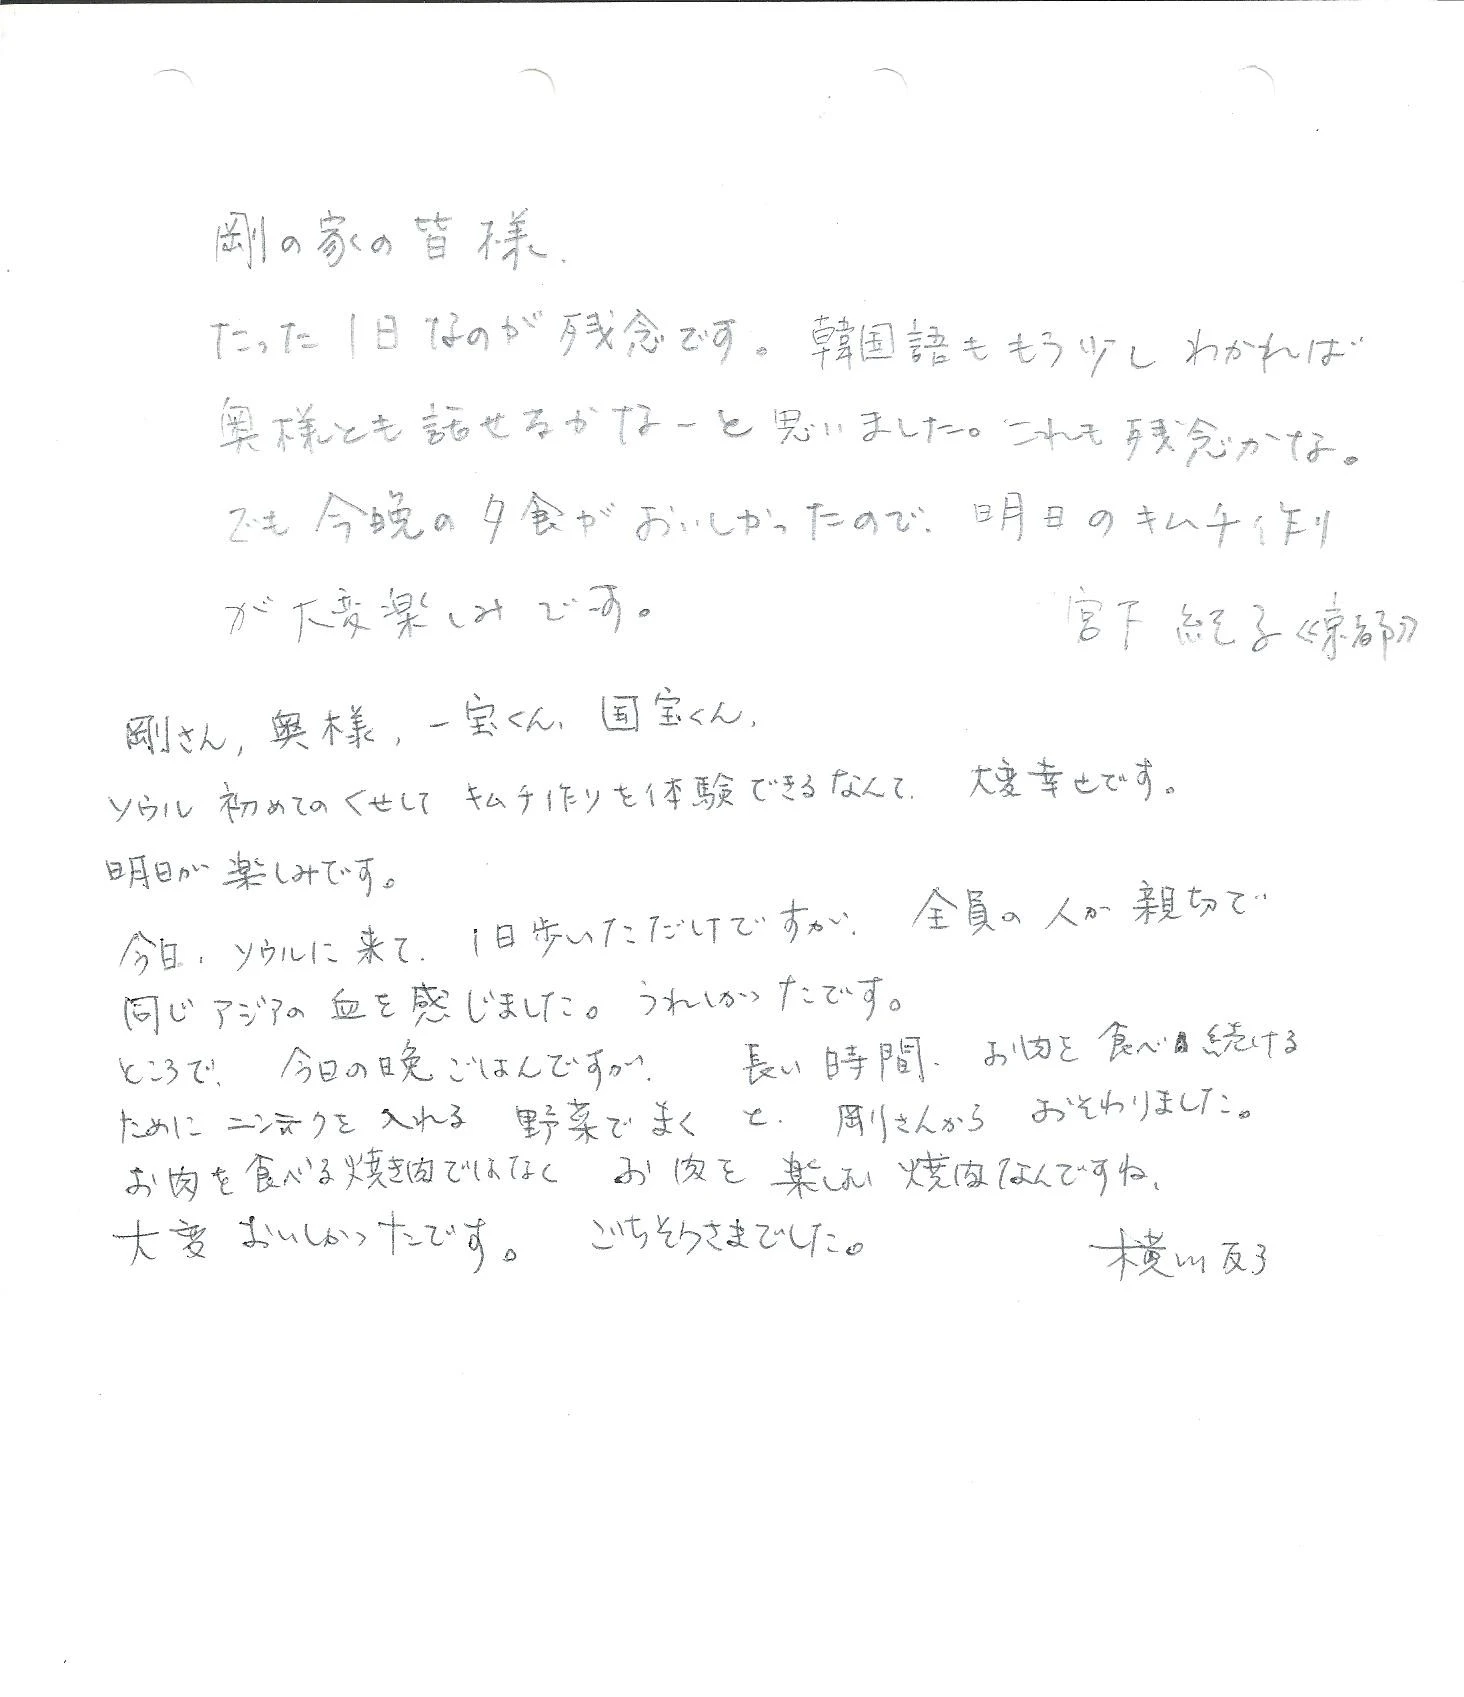 剛の家の皆様.
たった1日なのが残念です。韓国語ももう少しわかれば
奥様とも話せるかなーと思いました。これも残念かな。
でも今晩の夕食がおいしかったので、明日のキムチ作り
が大変楽しみです。 宮下 紀子《京都》
剛さん, 奥様, 一宝くん, 国宝くん,
ソウル 初めてのくせして キムチ作りを体験できるなんて、大変幸せです。
明日が楽しみです。
今日、ソウルに来て、1日歩いただけですが、全員の人が親切で
同じアジアの血を感じました。うれしかったです。
ところで、今日の晩ごはんですが、長い時間、お肉を食べ続ける
ために ニンニクを入れる 野菜でまく と、剛さんから おそわりました。
お肉を食べる焼き肉ではなく お肉を楽しむ 焼肉なんですね、
大変 おいしかったです。 ごちそうさまでした。 横川